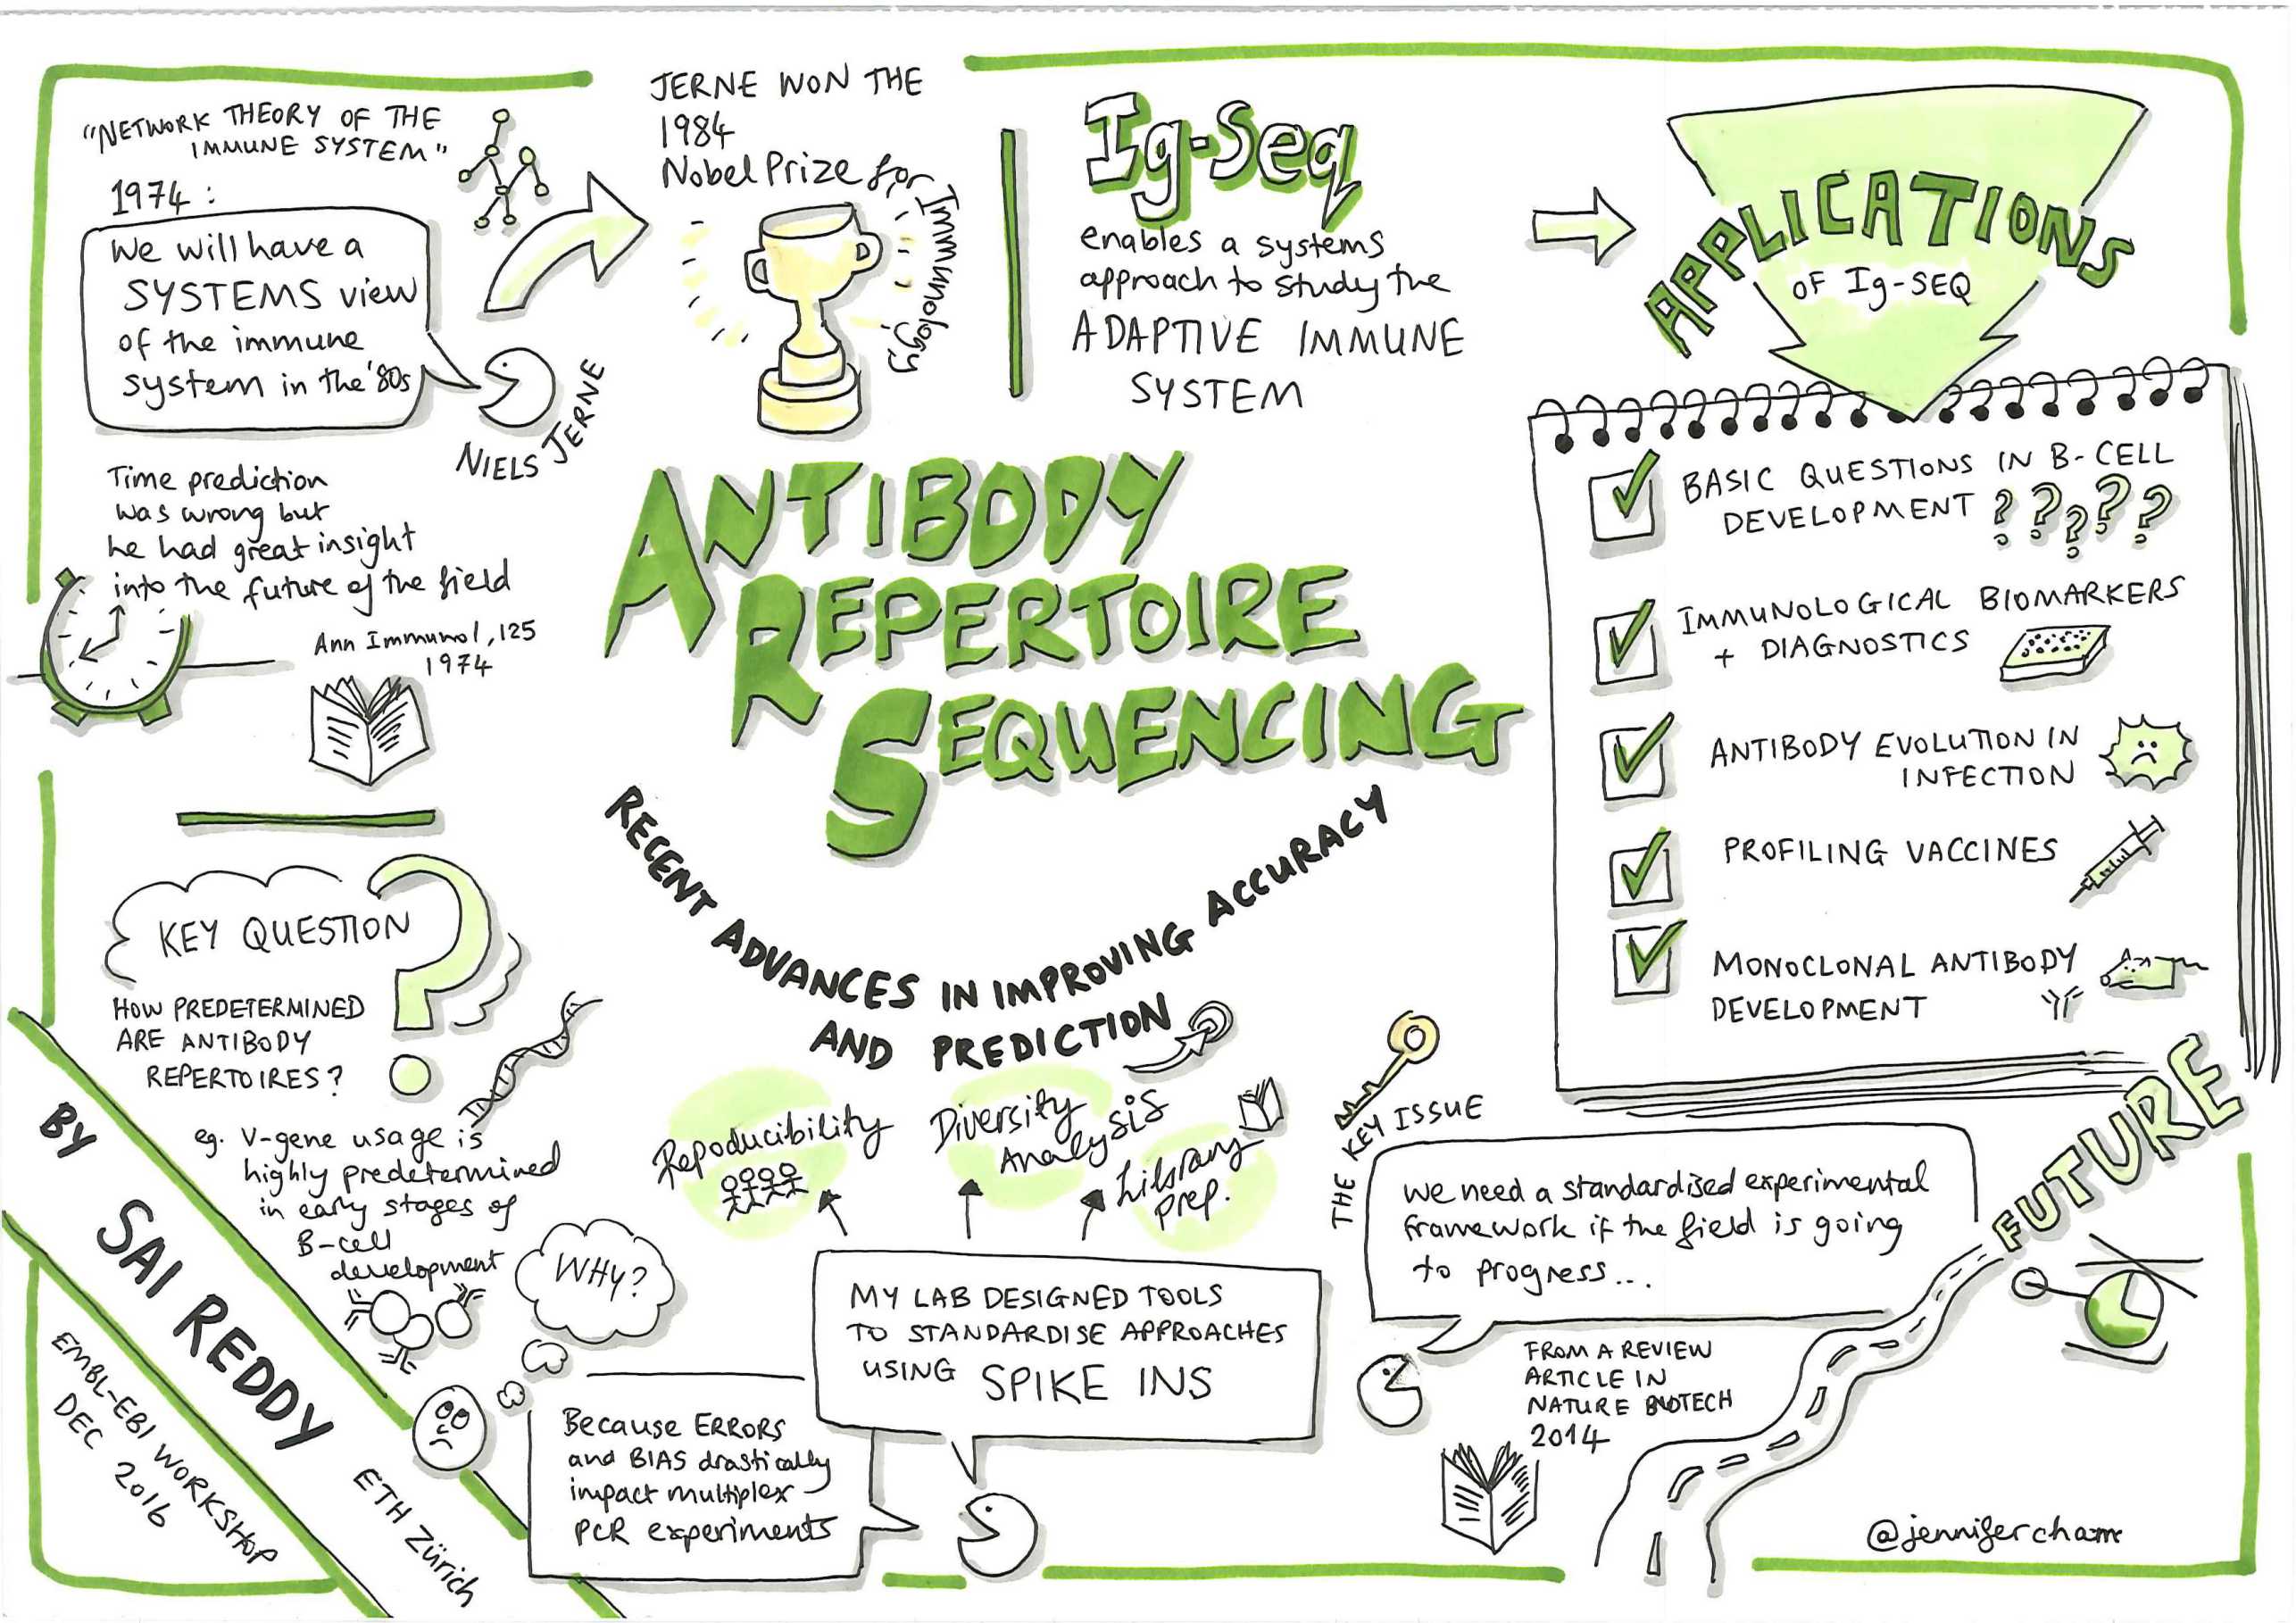 "NETWORK THEORY OF THE
IMMUNE SYSTEM"
1974:
We will have a
SYSTEMS view
of the immune
system in the '80s
NIELS JERNE
Time prediction
was wrong but
he had great insight
into the future of the field
Ann Immunol, 125
1974
JERNE WON THE
1984
Nobel Prize for
Immunology
Ig-Seq
enables a systems
approach to study the
ADAPTIVE IMMUNE
SYSTEM
APPLICATIONS
OF Ig-SEQ
BASIC QUESTIONS IN B-CELL
DEVELOPMENT ?????
IMMUNOLOGICAL BIOMARKERS
+ DIAGNOSTICS
ANTIBODY EVOLUTION IN
INFECTION
PROFILING VACCINES
MONOCLONAL ANTIBODY
DEVELOPMENT
ANTIBODY
REPERTOIRE
SEQUENCING
RECENT ADVANCES IN IMPROVING ACCURACY
AND PREDICTION
KEY QUESTION ?
HOW PREDETERMINED
ARE ANTIBODY
REPERTOIRES?
eg. V-gene usage is
highly predetermined
in early stages of
B-cell
development
BY SAI REDDY
ETH Zürich
EMBL-EBI WORKSHOP
DEC 2016
WHY?
Because ERRORS
and BIAS drastically
impact multiplex
PCR experiments
Repoducibility
Diversity
Analysis
Library
prep.
MY LAB DESIGNED TOOLS
TO STANDARDISE APPROACHES
USING SPIKE INS
THE KEY ISSUE
We need a standardised experimental
framework if the field is going
to progress...
FROM A REVIEW
ARTICLE IN
NATURE BIOTECH
2014
FUTURE
@jennifercham